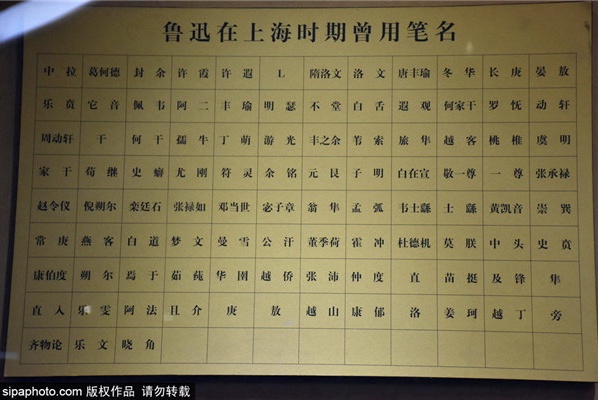 鲁迅在上海时期曾用笔名
中拉 葛何德 封余 许霞 许遐 L 隋洛文 洛文 唐丰瑜 冬华 长庚 晏敖
乐贲 它音 佩韦 阿二 丰瑜 明瑟 不堂 白舌 遐观 何家干 罗怃 动轩
周动轩 干 何干 孺牛 丁萌 游光 丰之余 苇索 旅隼 越客 桃椎 虞明
家干 荀继 史癖 尤刚 符灵 余铭 元艮 子明 白在宣 敬一尊 一尊 张承禄
赵令仪 倪朔尔 栾廷石 张禄如 邓当世 宓子章 翁隼 孟弧 韦士繇 士繇 黄凯音 崇巽
常庚 燕客 白道 梦文 曼雪 公汗 董季荷 霍冲 杜德机 莫朕 中头 史贲
康伯度 朔尔 焉于 茹莼 华圉 越侨 张沛 仲度 直 苗挺 及锋 隼
直入 乐雯 阿法 且介 庚 敖 越山 康郁 洛 姜珂 越丁 旁
齐物论 乐文 晓角
sipaphoto.com 版权作品 请勿转载